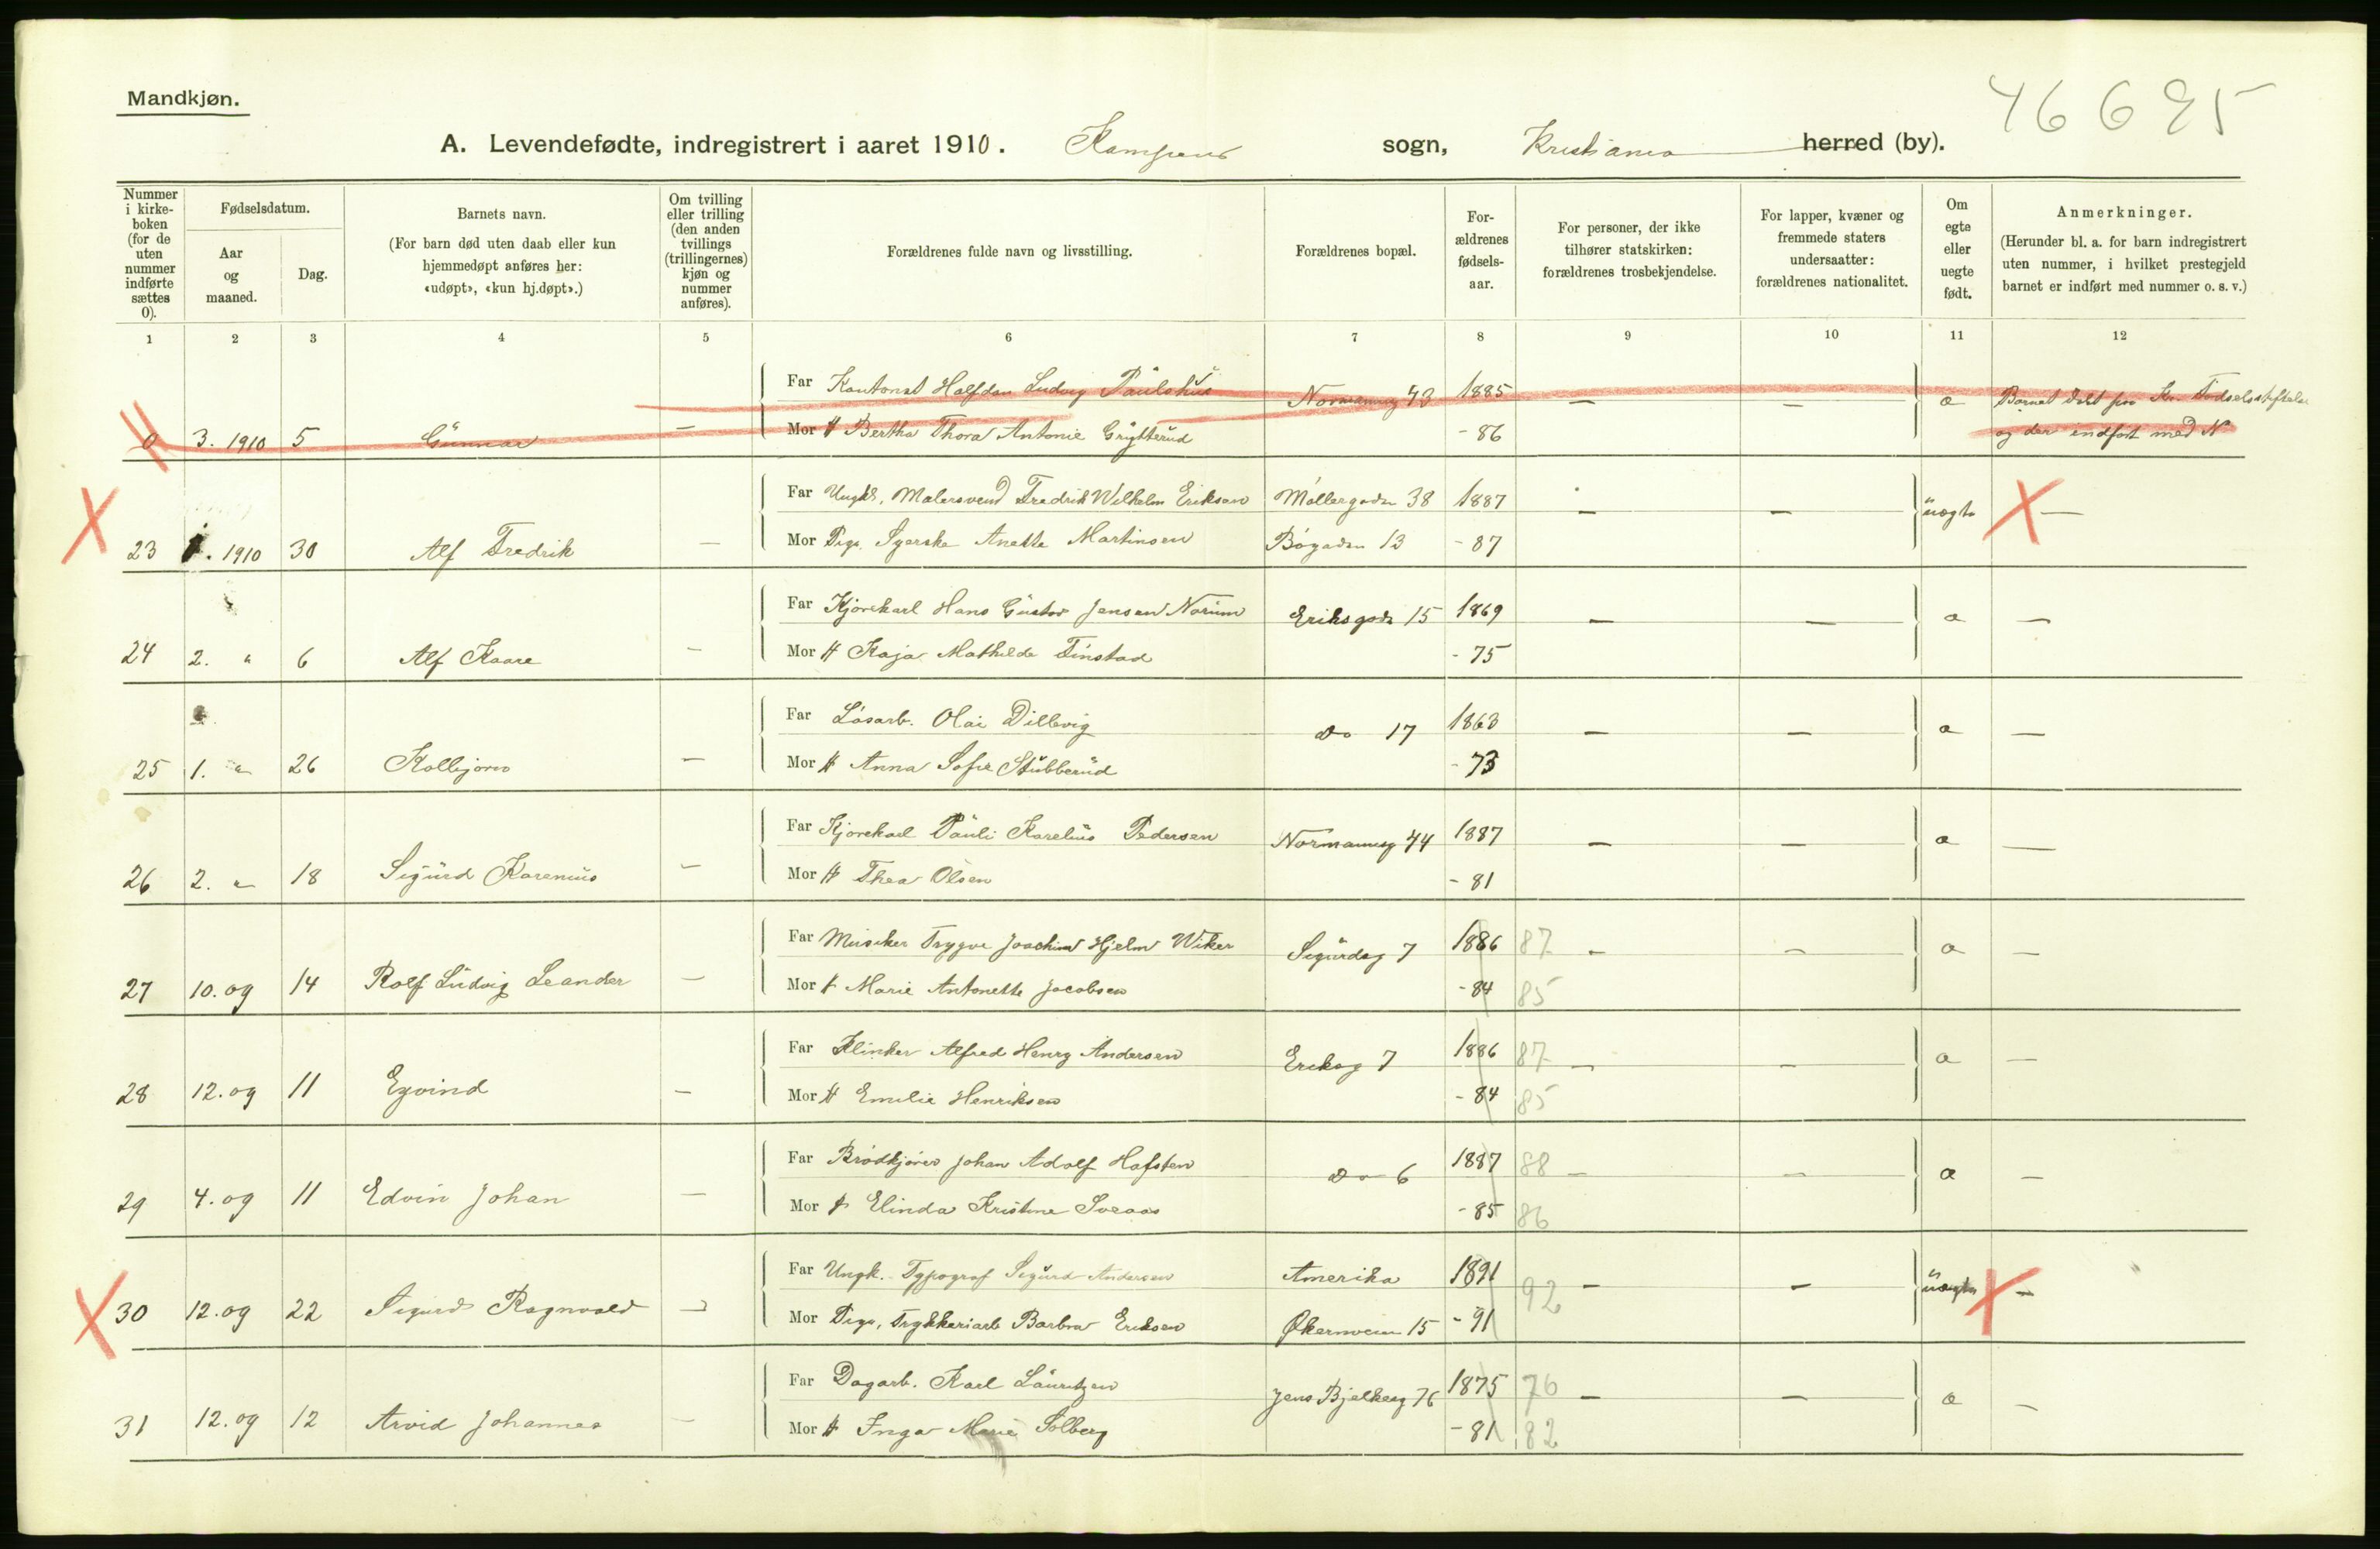 Mandkjøn.
46 695
A. Levendefødte, indregistrert i aaret 1910. Kampens sogn, Kristiania herred (by).
Nummer i kirke-boken (for de uten nummer indførte sættes 0).
Fødselsdatum.
Aar og maaned.
Dag.
Barnets navn.
(For barn død uten daab eller kun hjemmedøpt anføres her: «udøpt», «kun hj.døpt».)
Om tvilling eller trilling (den anden tvillings (trillingernes) kjøn og nummer anføres).
Forældrenes fulde navn og livsstilling.
Forældrenes bopæl.
For-ældrenes fødsels-aar.
For personer, der ikke tilhører statskirken: forældrenes trosbekjendelse.
For lapper, kvæner og fremmede staters undersaatter: forældrenes nationalitet.
Om egte eller uegte født.
Anmerkninger.
(Herunder bl. a. for barn indregistrert uten nummer, i hvilket prestegjeld barnet er indført med nummer o. s. v.)
1 2 3 4 5 6 7 8 9 10 11 12
Far Kontorist Halfdan Ludvig Paulshus Normannsg 43 1885 — — a Barnet døbt paa Kr. Fødselsstiftelse
0 3. 1910 5 Gunnar — Mor H Bertha Thora Antonie Grytterud - 86 og der indført med N
Far Ungk. Malersvend Fredrik Wilhelm Eriksen Møllergaden 38 1887 — — uegte —
23 1. 1910 30 Alf Fredrik — Mor Pige Syerske Anette Martinsen Bøgaden 13 - 87
Far Kjørekarl Hans Gustav Jensen Norum Eriksgade 15 1869 — — a —
24 2. " 6 Alf Kaare — Mor H Kaja Mathilde Finstad - 75
Far Løsarb. Olai Dillevig do 17 1863 — — a —
25 1. " 26 Kolbjørn — Mor H Anna Sofie Stubberud - 73
Far Kjørekarl Pauli Karelius Pedersen Normannsg 44 1887 — — a —
26 2. " 18 Sigurd Karenius — Mor H Thea Olsen - 81
Far Musiker Trygve Joachim Hjelm Wiker Sigurdsg 7 1886 87 — — a —
27 10. 09 14 Rolf Ludvig Leander — Mor H Marie Antonette Jacobsen - 84 85
Far Klinker Alfred Henry Andersen Eriksg 7 1886 87 — — a —
28 12. 09 11 Eyvind — Mor H Emilie Henriksen - 84 85
Far Brødkjører Johan Adolf Hafsten do 6 1887 88 — — a —
29 4. 09 11 Edvin Johan — Mor H Elinda Kristine Sveaas - 85 86
Far Ungk. Typograf Sigurd Andersen Amerika 1891 92 — — uegte —
30 12. 09 22 Sigurd Ragnvald — Mor Pige, Trykkeriarb Barbra Eriksen Økernveien 15 - 91
Far Dagarb. Karl Lauritzen Jens Bjelkesg 76 1875 76 — — a —
31 12. 09 12 Arvid Johannes — Mor H Inga Marie Solberg - 81 82